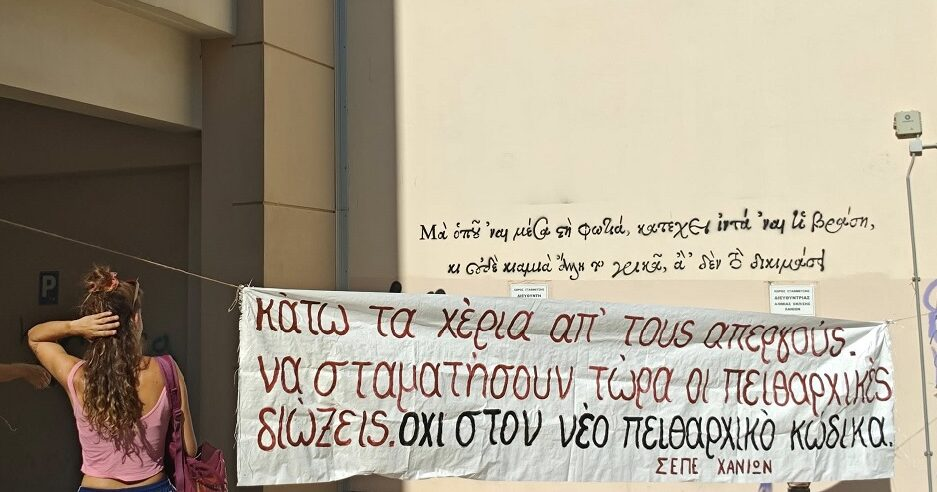 Μὰ ὁποῦ 'ναι μέσα στὴ φωτιά, κατέχει ἰντά 'ναι τὶ βράση,
κι οὐδὲ κιαμιὰ ἄλλη τὸ γρικᾶ, ἂ δὲν τὸ δικιμάσῃ
P
ΧΩΡΟΣ ΣΤΑΘΜΕΥΣΗΣ
ΔΙΕΥΘΥΝΤΗ
ΧΩΡΟΣ ΣΤΑΘΜΕΥΣΗΣ
ΔΙΕΥΘΥΝΤΡΙΑΣ
ΧΑΝΙΩΝ
κὰτω τα χέρια απ' τους απεργούς.
νὰ σταματήσουν τώρα οι πειθαρχικὲς
διώξεις. οχι στον νὲο πειθαρχικὸ κώδικα.
ΣΕΠΕ ΧΑΝΙΩΝ